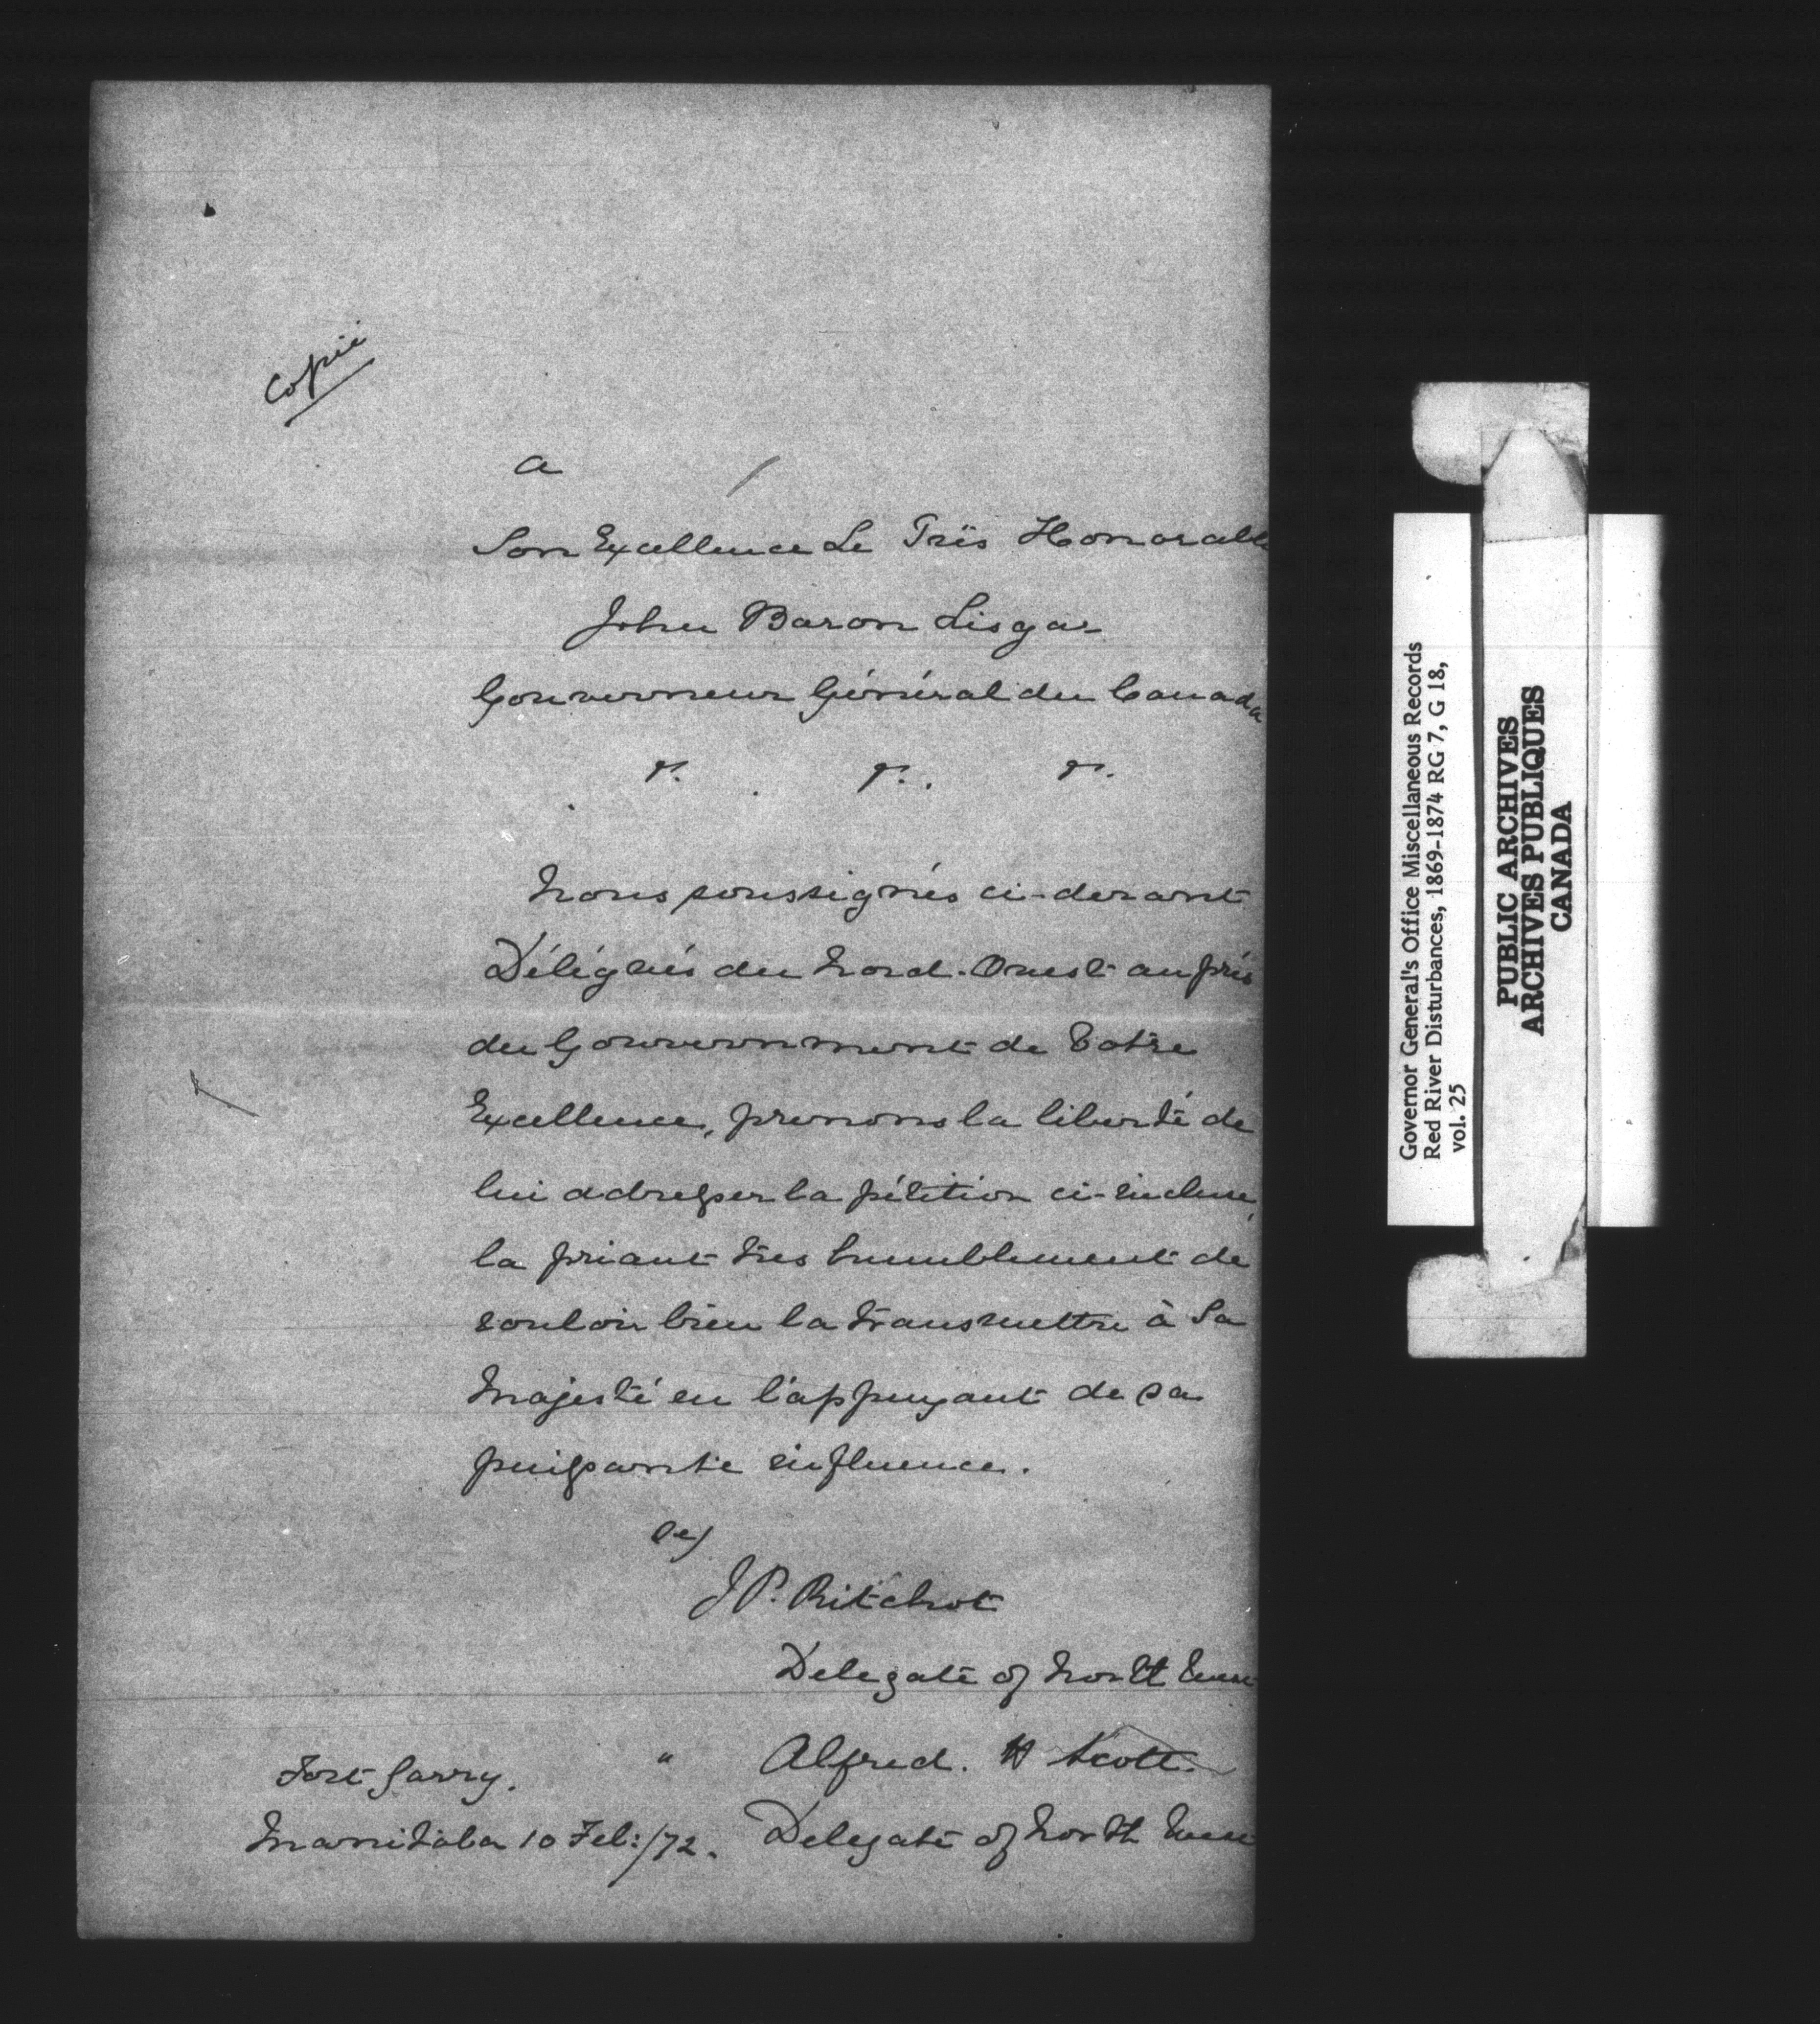 Copie
a
Son Excellence Le Très Honorable
John Baron Lisgar
Gouverneur Général du Canada
&. &. &.
Nous soussignés ci-devant
Délégués du Nord-Ouest auprès
du Gouvernment de Votre
Excellence, prenons la liberté de
lui adresser la pétition ci-incluse,
la priant très humblement de
vouloir bien la transmettre à Sa
Majesté en l'appuyant de sa
puissante influence.
J P. Ritchot
Delegate of North West
" Alfred. H Scott.
Fort Garry.
Manitoba 10 Feb:/72. Delegate of North West
Governor General's Office Miscellaneous Records
Red River Disturbances, 1869-1874 RG 7, G 18,
vol. 25
PUBLIC ARCHIVES
ARCHIVES PUBLIQUES
CANADA